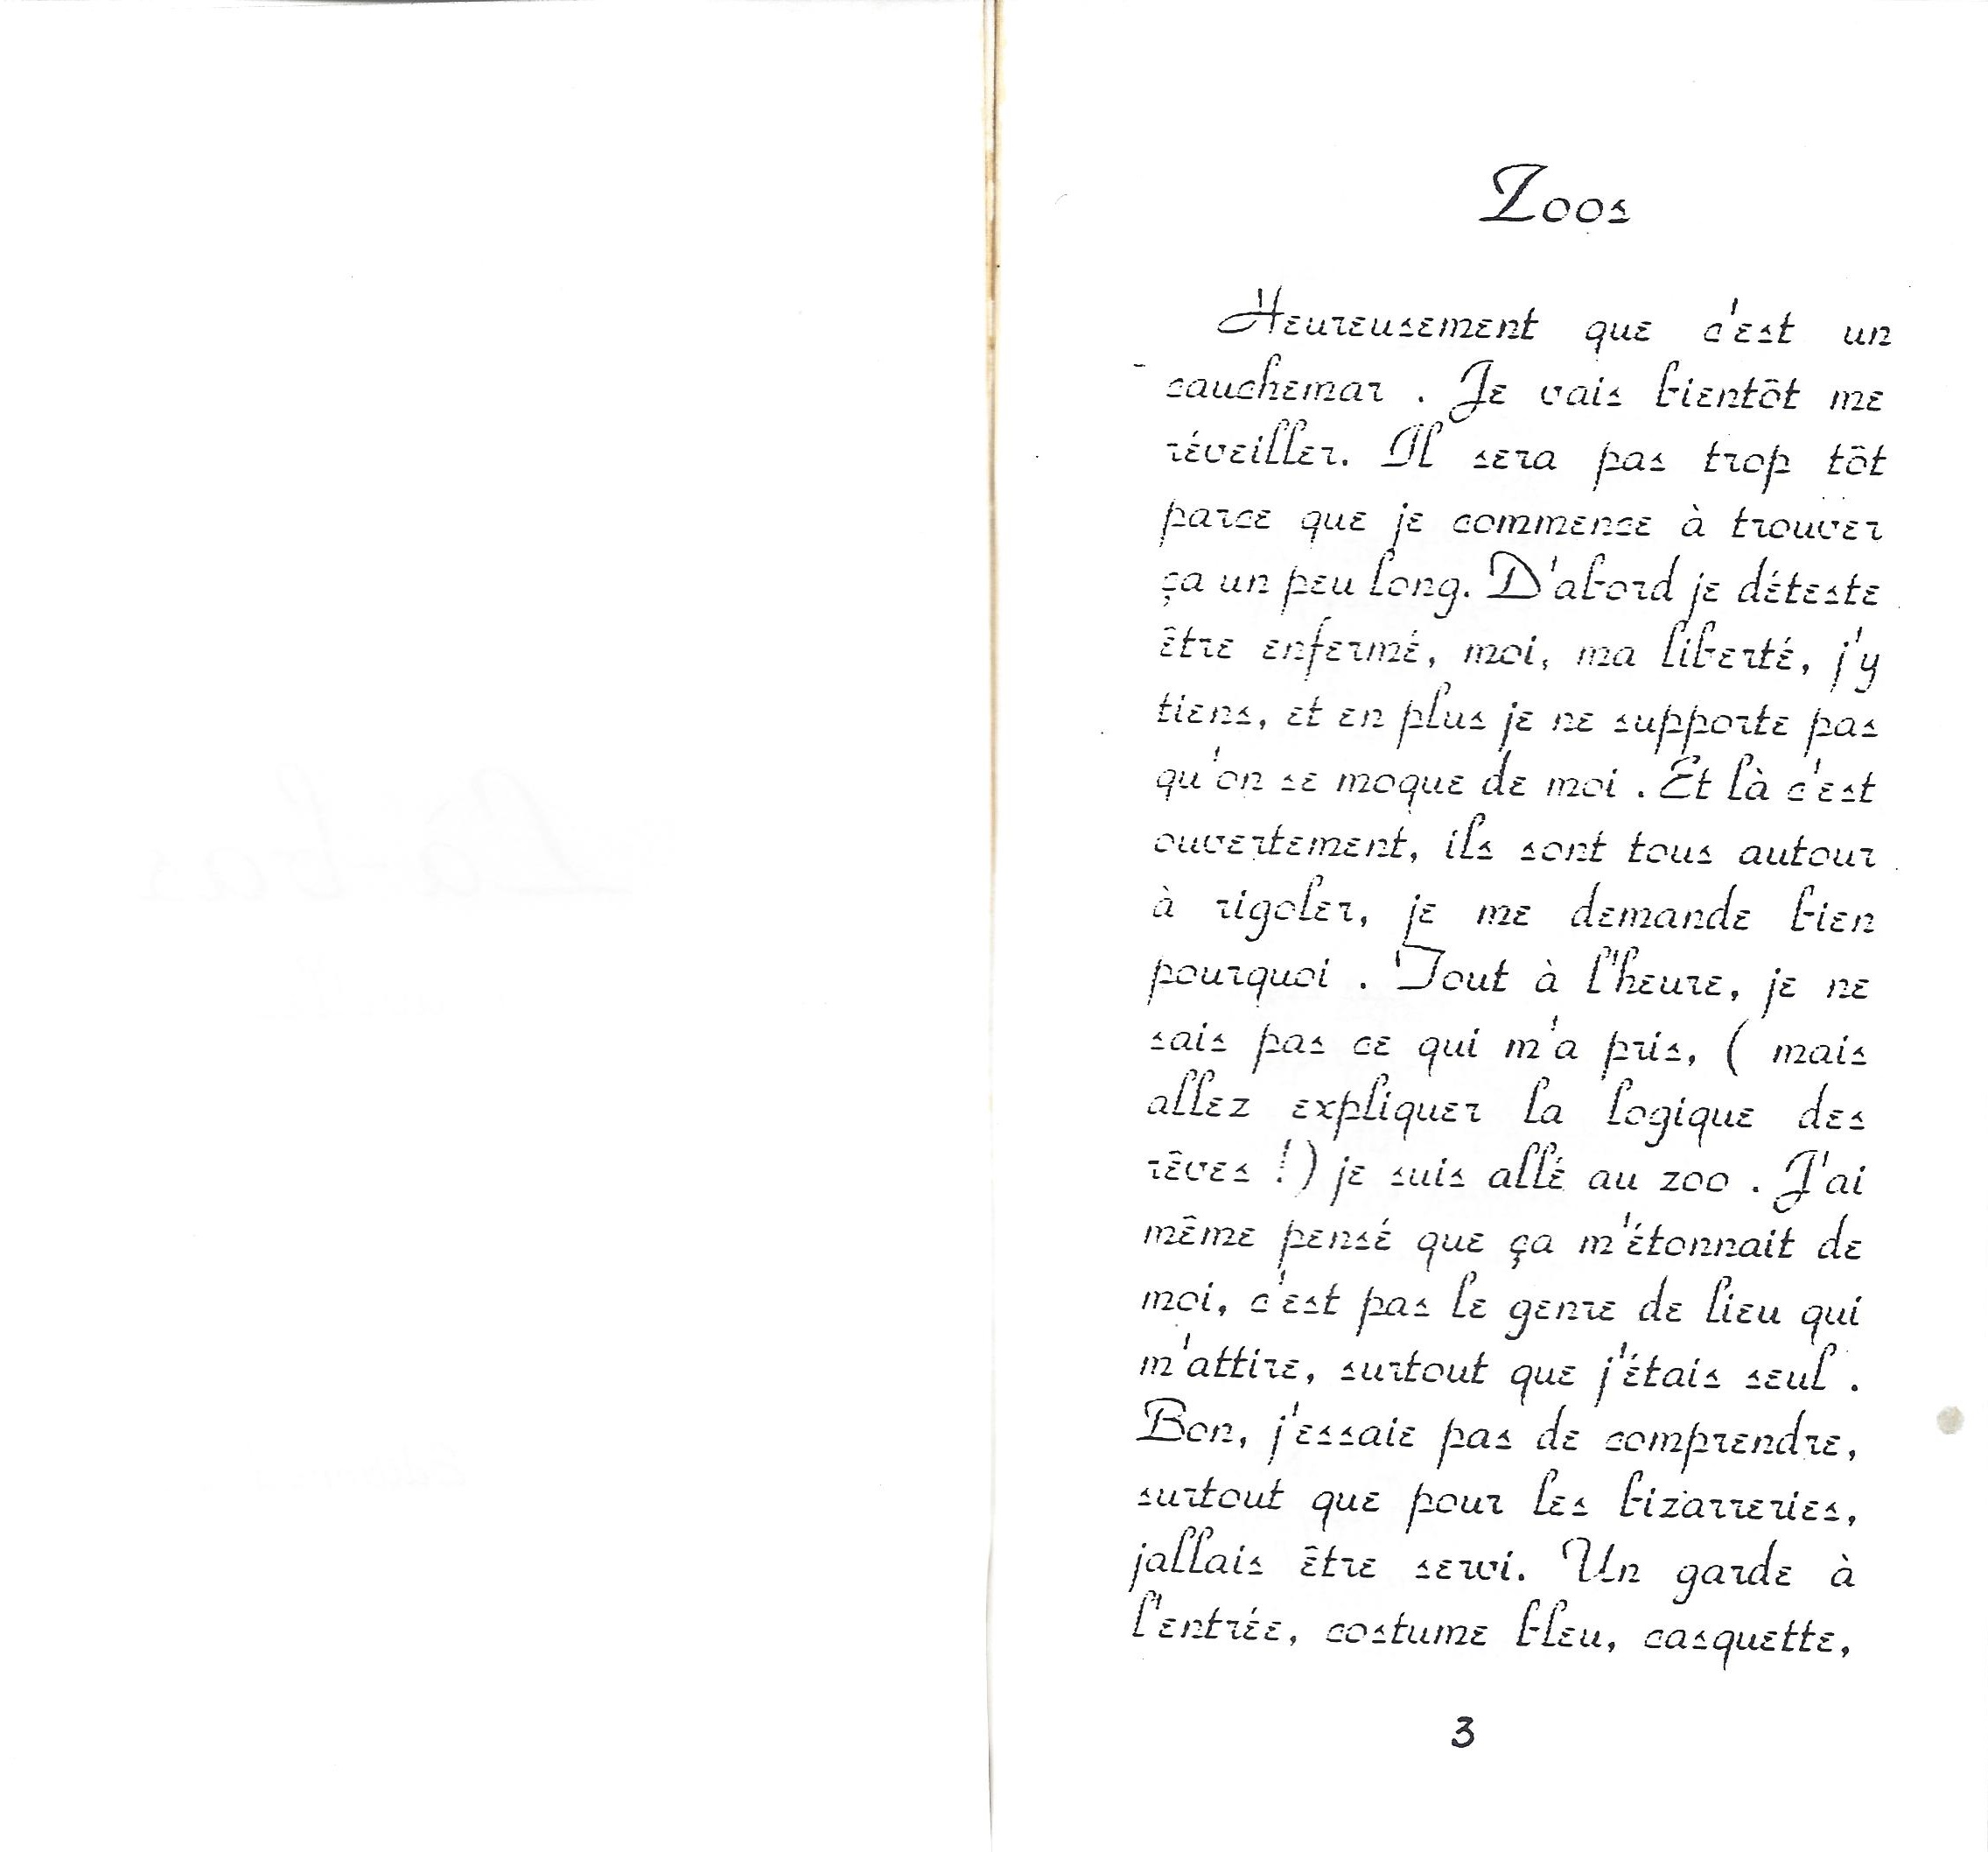 Zoos
Heureusement que c'est un
cauchemar . Je vais bientôt me
réveiller. Il sera pas trop tôt
parce que je commence à trouver
ça un peu long. D'abord je déteste
être enfermé, moi, ma liberté, j'y
tiens, et en plus je ne supporte pas
qu'on se moque de moi . Et là c'est
ouvertement, ils sont tous autour
à rigoler, je me demande bien
pourquoi . Tout à l'heure, je ne
sais pas ce qui m'a pris, ( mais
allez expliquer la logique des
rêves !) je suis allé au zoo . J'ai
même pensé que ça m'étonnait de
moi, c'est pas le genre de lieu qui
m'attire, surtout que j'étais seul .
Bon, j'essaie pas de comprendre,
surtout que pour les bizarreries,
jallais être servi. Un garde à
l'entrée, costume bleu, casquette,
3